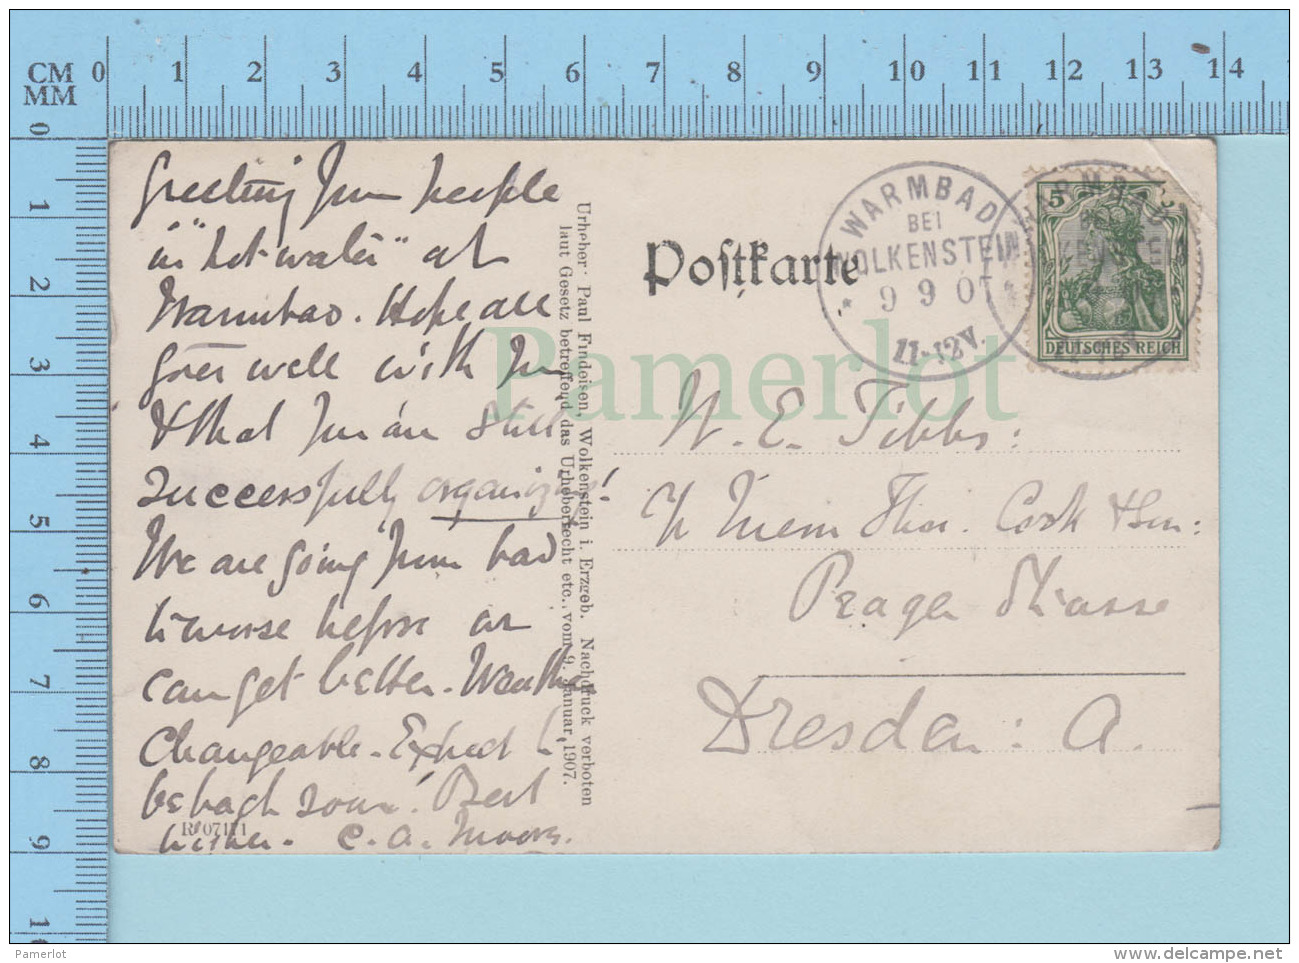 CM 0 1 2 3 4 5 6 7 8 9 10 11 12 13 14
MM
0
1
2
3
4
5
6
7
8
9
Greeting from people
in "hot water" at
Warmbad. Hope all
goes well with you
& that you are still
successfully organizing!
We are going from bad
to worse before we
can get better. Weather
changeable. Expect to
be back soon! Best
wishes. C. A. Moore.
R 07111
Urheber: Paul Findeisen, Wolkenstein i. Erzgeb. Nachdruck verboten
laut Gesetz betreffend das Urheberrecht etc., vom 9. Januar 1907.
Postkarte
WARMBAD
BEI
WOLKENSTEIN
9 9 07
11-12V.
WARMBAD
5
DEUTSCHES REICH
Pamerlot
W. E. Tibbs:
Thos. Cook & Son:
Prager Strasse
Dresden: A.
Pamerlot
https://www.delcampe.net